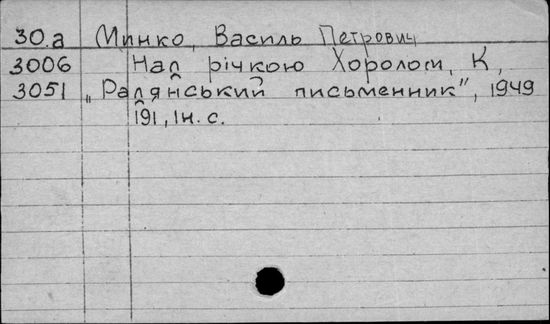 30.а Минко, Василь Петрович
3006 Над річкою Хоролом, К,
3051 „Радянський письменник", 1949
191, 1н. с.